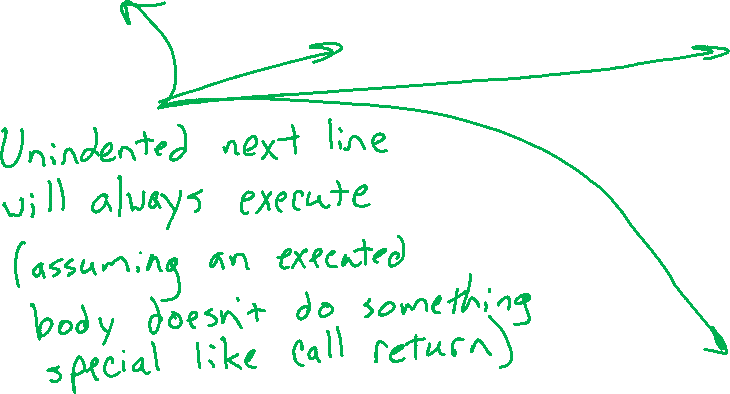 Unindented next line
will always execute
(assuming an executed
body doesn't do something
special like call return)